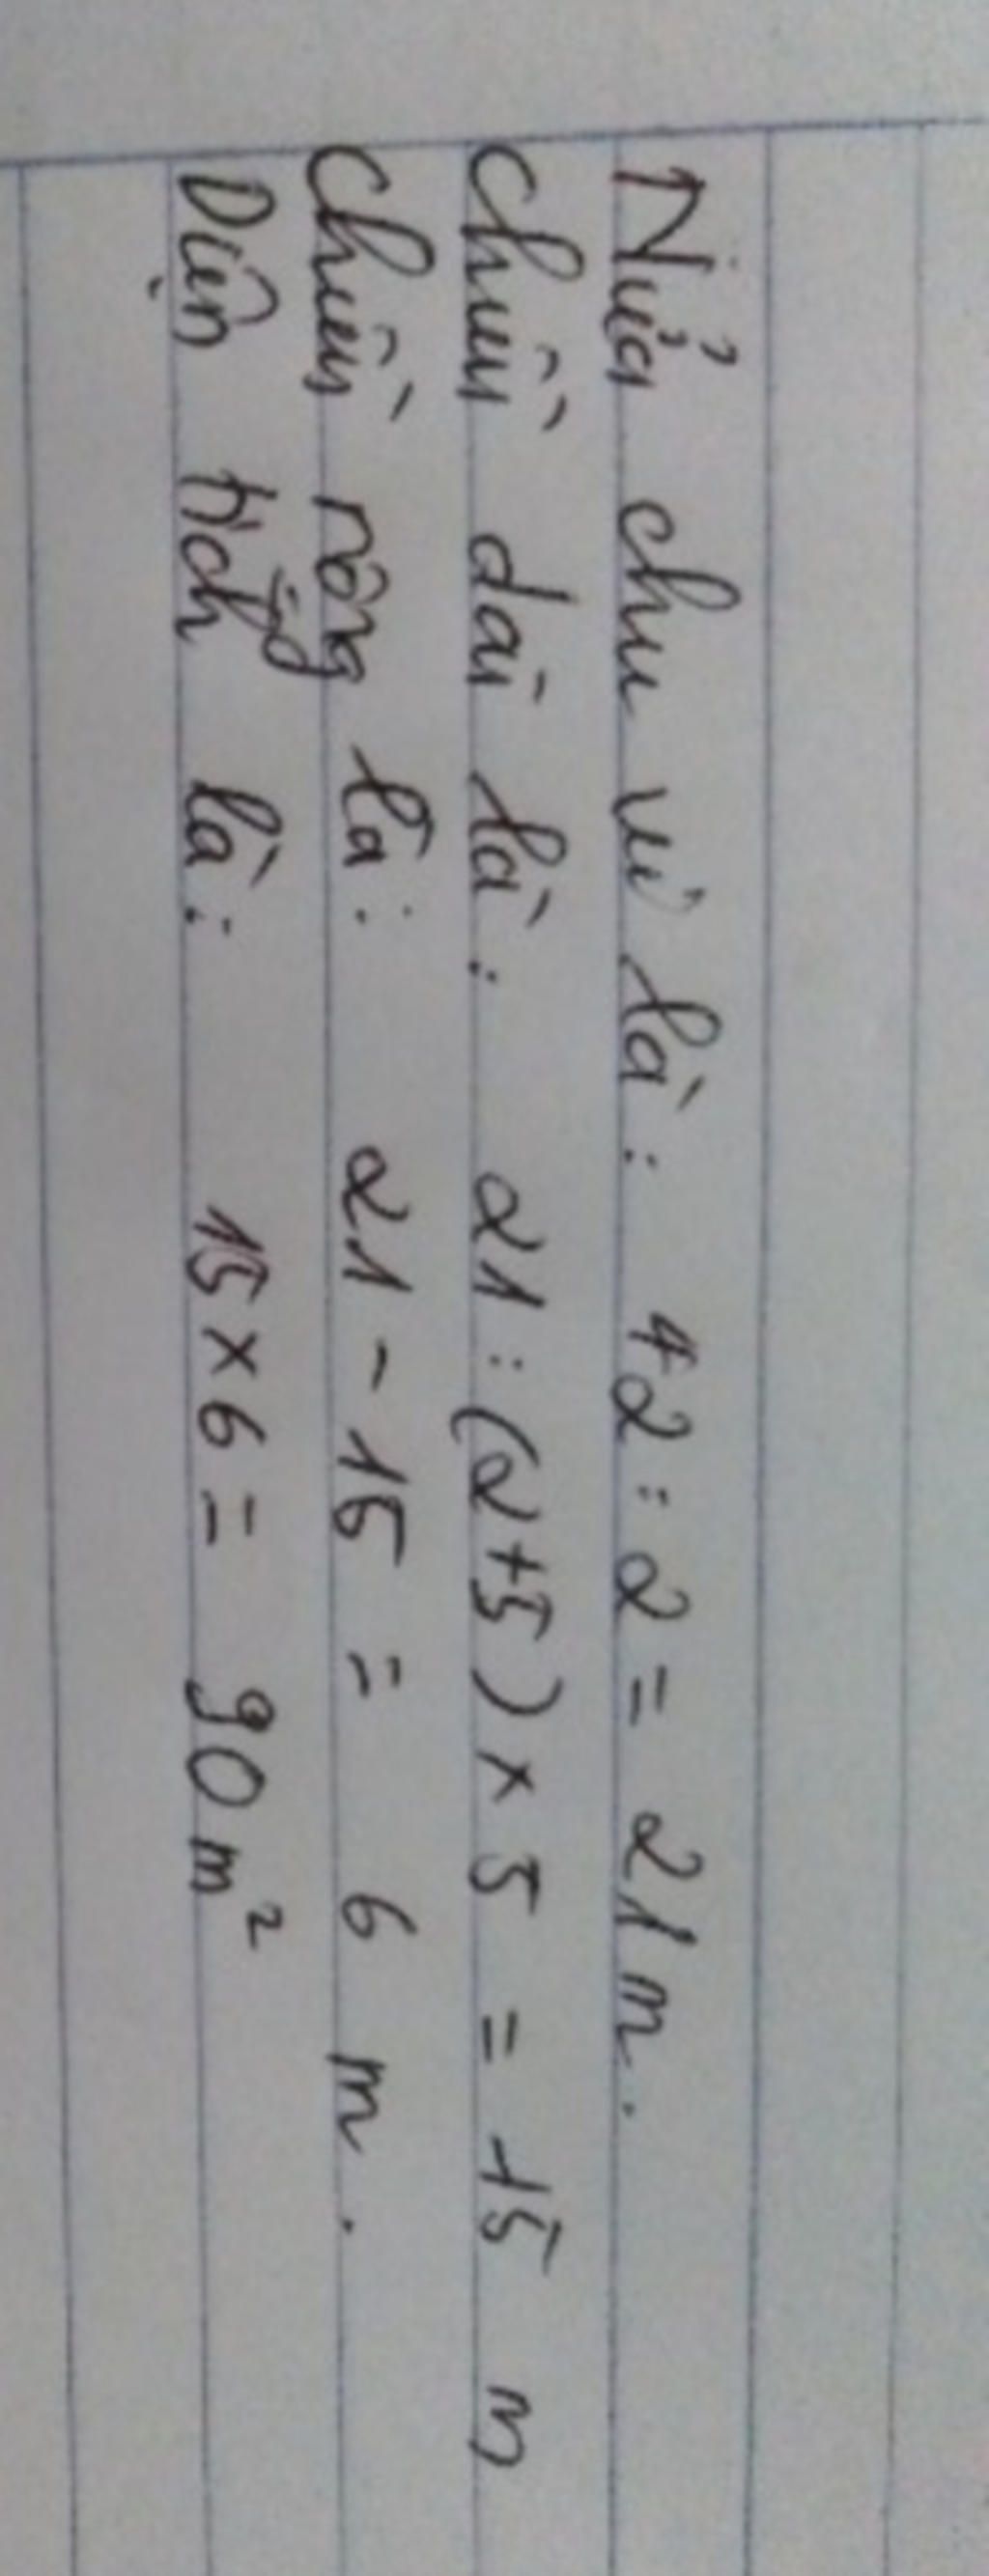 Nửa chu vi là: 42 : 2 = 21m.
Chiều dài là: 21 : (2+5) x 5 = 15 m
Chiều rộng là: 21 - 15 = 6 m.
Diện tích là: 15 x 6 = 90 m²